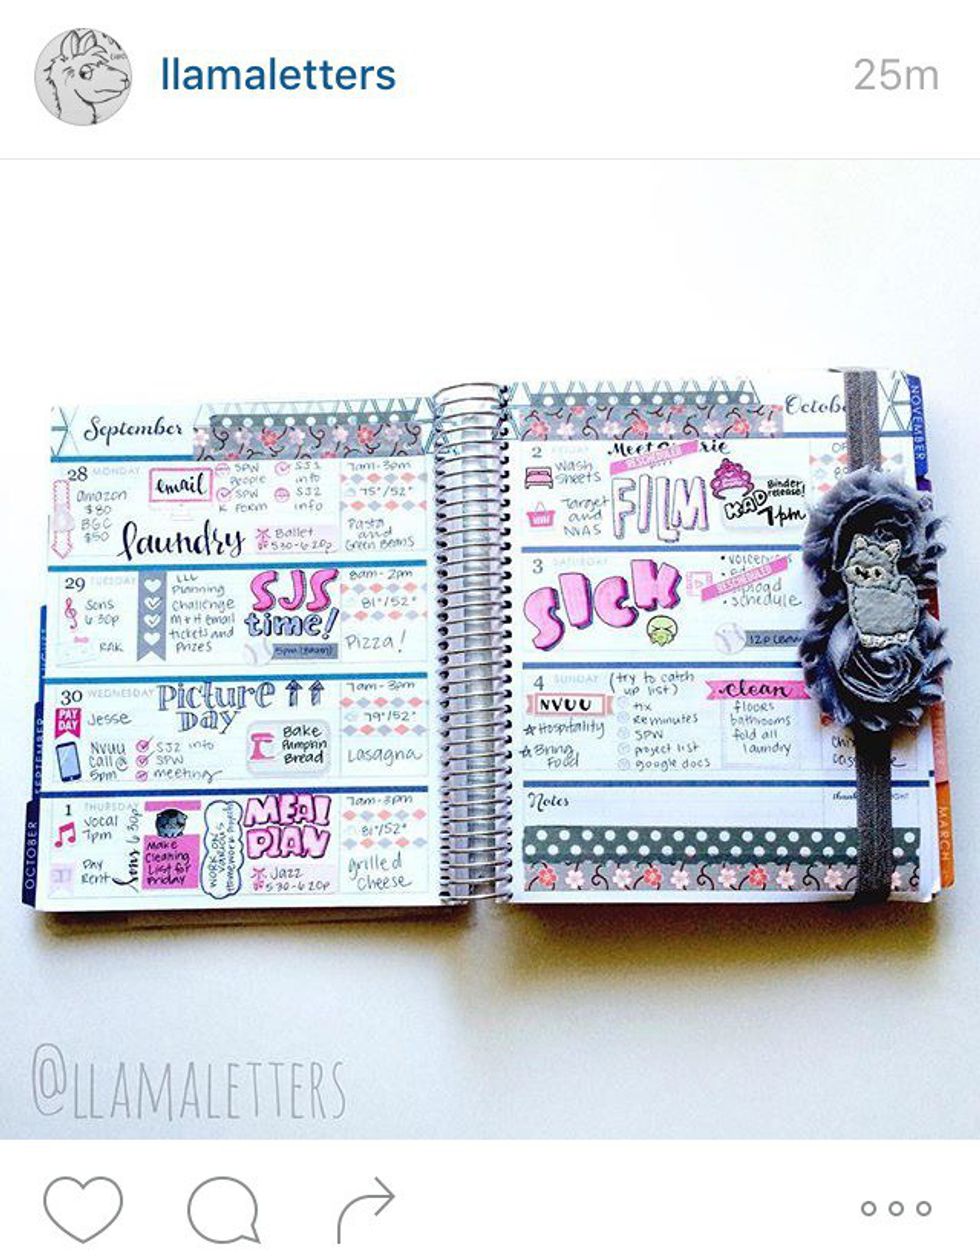 llamaletters
25m
September
28 MONDAY
Amazon
$80
BGC
$50
email
SPW
People
SPW
K form
SJ1
info
SJ2
info
laundry
Ballet
5:30-6:20p
7am-3pm
75°/52°
Pasta
and
Green Beans
29 TUESDAY
Sons
6:30p
RAK
Planning
Challenge
M+H email
tickets and
Prizes
SJS
time!
8am-2pm
81°/52°
Pizza!
30 WEDNESDAY
PAY
DAY
Jesse
NVUU
Call@
5pm
Picture
DAY
SJ2 info
SPW
meeting
Bake
Pumpkin
Bread
7am-3pm
79°/52°
Lasagna
1 THURSDAY
Vocal
7pm
Pay
Rent
Make
Cleaning
List for
Friday
MEAL
PLAN
Jazz
5:30-6:20p
7am-3pm
81°/52°
grilled
cheese
OCTOBER
SEPTEMBER
2 FRIDAY
Wash
Sheets
Target
and
NAS
RESCHEDULED
FILM
KAD
Binder
release!
7pm
3 SATURDAY
SICK
RESCHEDULED
upload
schedule
4 SUNDAY
NVUU
Hospitality
Bring
Food
(try to catch
up list)
tix
Re minutes
SPW
project list
google docs
clean
floors
bathrooms
fold all
laundry
Notes
NOVEMBER
MARCH
@LLAMALETTERS